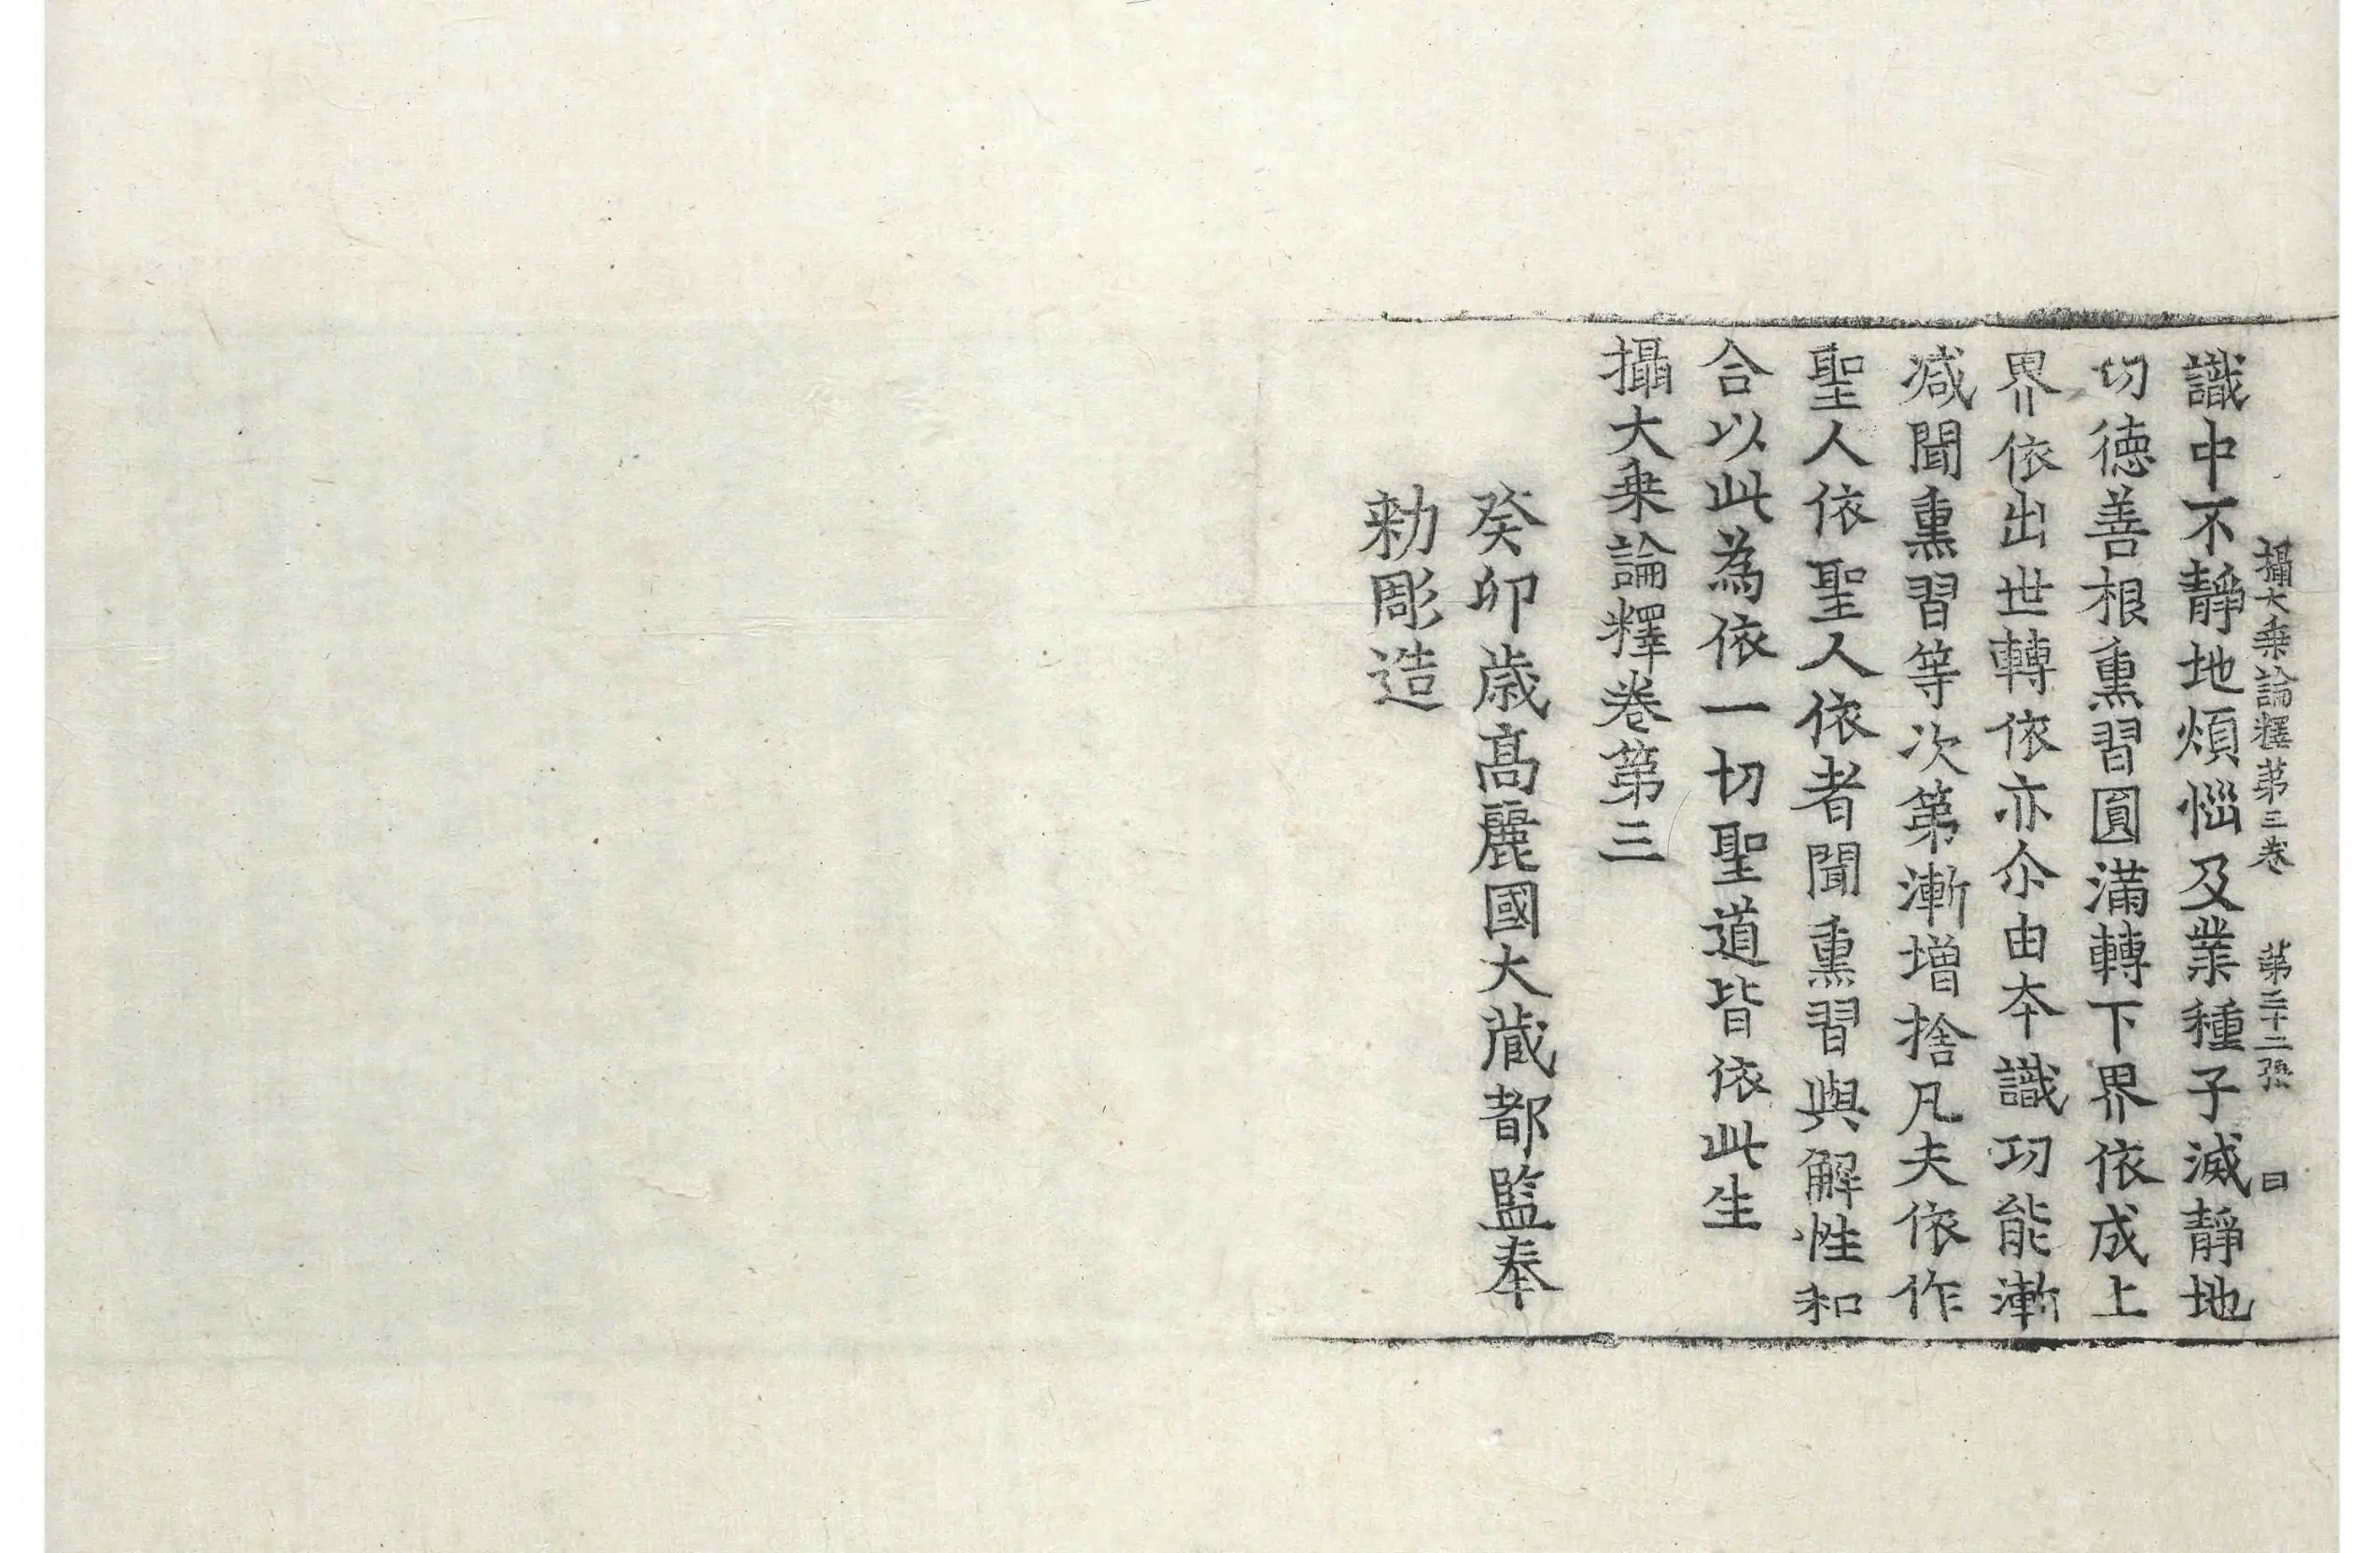 攝大乗論釋第三卷 第三十二張 曰
識中不靜地煩惱及業種子滅靜地
功徳善根熏習圓滿轉下界依成上
界依出世轉依亦尒由夲識功能漸
减聞熏習等次第漸增捨凡夫依作
聖人依聖人依者聞熏習與解性和
合以此為依一切聖道皆依此生
攝大乗論釋卷第三
癸卯歳髙麗國大藏都監奉
勑彫造